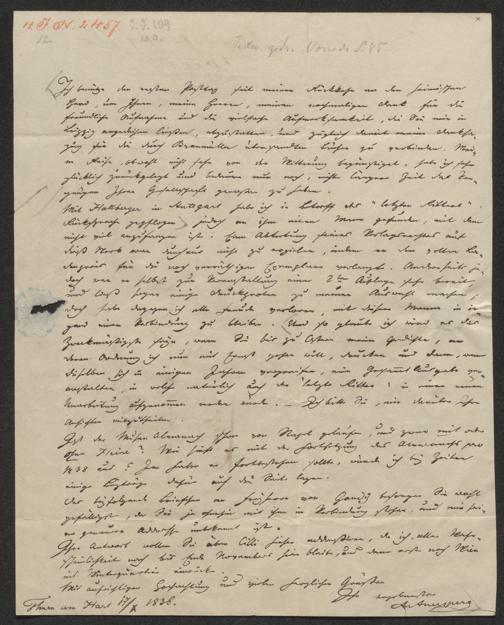 H. I. N. 24157
12
Ich benütze den ersten Posttag seit meiner Rückkehr an den heimischen
Herd, um Ihnen, mein Herr, meinen nochmaligen Dank für die
freundliche Aufnahme und die vielfache Aufmerksamkeit, die Sie mir in
Leipzig angedeihen ließen, abzustatten, und zugleich damit meine
für die durch übersandten Bücher zu verbinden. Mei-
ne Reise, obwohl nicht sehr von der Witterung begünstigt, habe ich sehr
glücklich zurückgelegt und bedaure nur noch, nicht längere Zeit das Ver-
gnügen Ihrer Gesellschaft genossen zu haben.
Mit Hallberger in Stuttgart habe ich in Betreff des "letzten Ritters"
Rücksprache gepflogen, jedoch an ihm einen Mann gefunden, mit dem
nicht viel anzufangen ist. Eine Abtretung seines Verlagsrechtes auf
dieß Werk war durchaus nicht zu erzielen, indem er den vollen La-
denpreis für die noch vorräthigen Exemplare verlangt. Anderseits je-
doch war er selbst zur Veranstaltung einer 2ten Auflage sehr bereit
und ließ sogar einige Druckproben zu meiner Auswahl machen,
doch habe dagegen ich alle Freude verloren, mit diesem Manne in ir-
gend einer Verbindung zu bleiben. Und so glaube ich wird es das
Zweckmäßigste seyn, wenn Sie bis zu Ostern meine Gedichte, an
deren Ordnung ich nun mit Ernst gehen will, drucken und dann, wenn
dieselben sich in einigen Jahren vergreifen, eine Gesammtausgabe ver-
anstalten, in welche natürlich auch der "letzte Ritter" in einer neuen
Umarbeitung aufgenommen werden würde. — Ich bitte Sie, mir darüber Ihre
Ansichten mitzutheilen.
Ist der Musen Almanach schon vom Stapel gelaufen, und zwar mit oder
ohne Heine? Wie sieht es mit der Fortsetzung des Almanachs pro
1838 aus? Im Falle er fortbestehen sollte, würde ich bei Zeiten
einige Beiträge dafür auf die Seite legen.
Das beifolgende Briefchen an besorgen Sie wohl
gefälligst, da Sie ja ohnehin mit ihm in Verbindung stehen, und mir sei-
ne genauere Addresse unbekannt ist.
Ihre Antwort wollen Sie über Cilli hieher addressiren, da ich aller Wahr-
scheinlichkeit nach bis Ende Novembers hier bleibe, und dann erst nach Wien
ins Winterquartier einrücke.
Mit aufrichtiger Hochachtung und vielen herzlichen Grüßen
Ihr ergebenster
A. Auersperg
Thurn am Hart